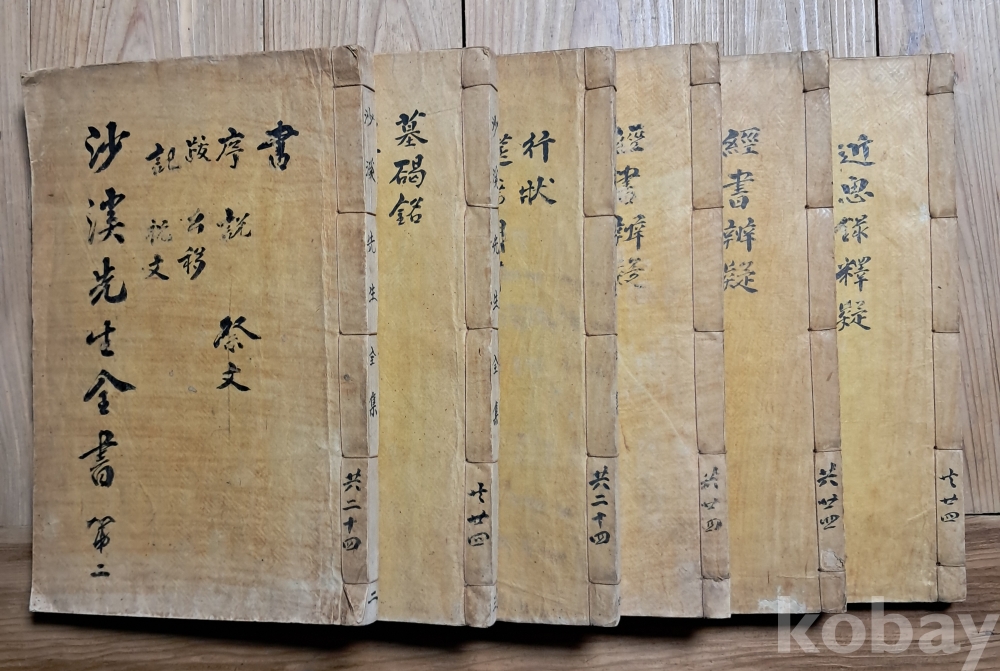 書
序 說 祭文
跋 公移
記 祝文
沙溪先生全書 第二
共二十四
沙溪先生全集 二
墓碣銘
共廿四
沙溪先生全集 三
行狀
共二十四
經書辨疑
共廿四
經書辨疑
共廿四
近思錄釋疑
共廿四
kobay